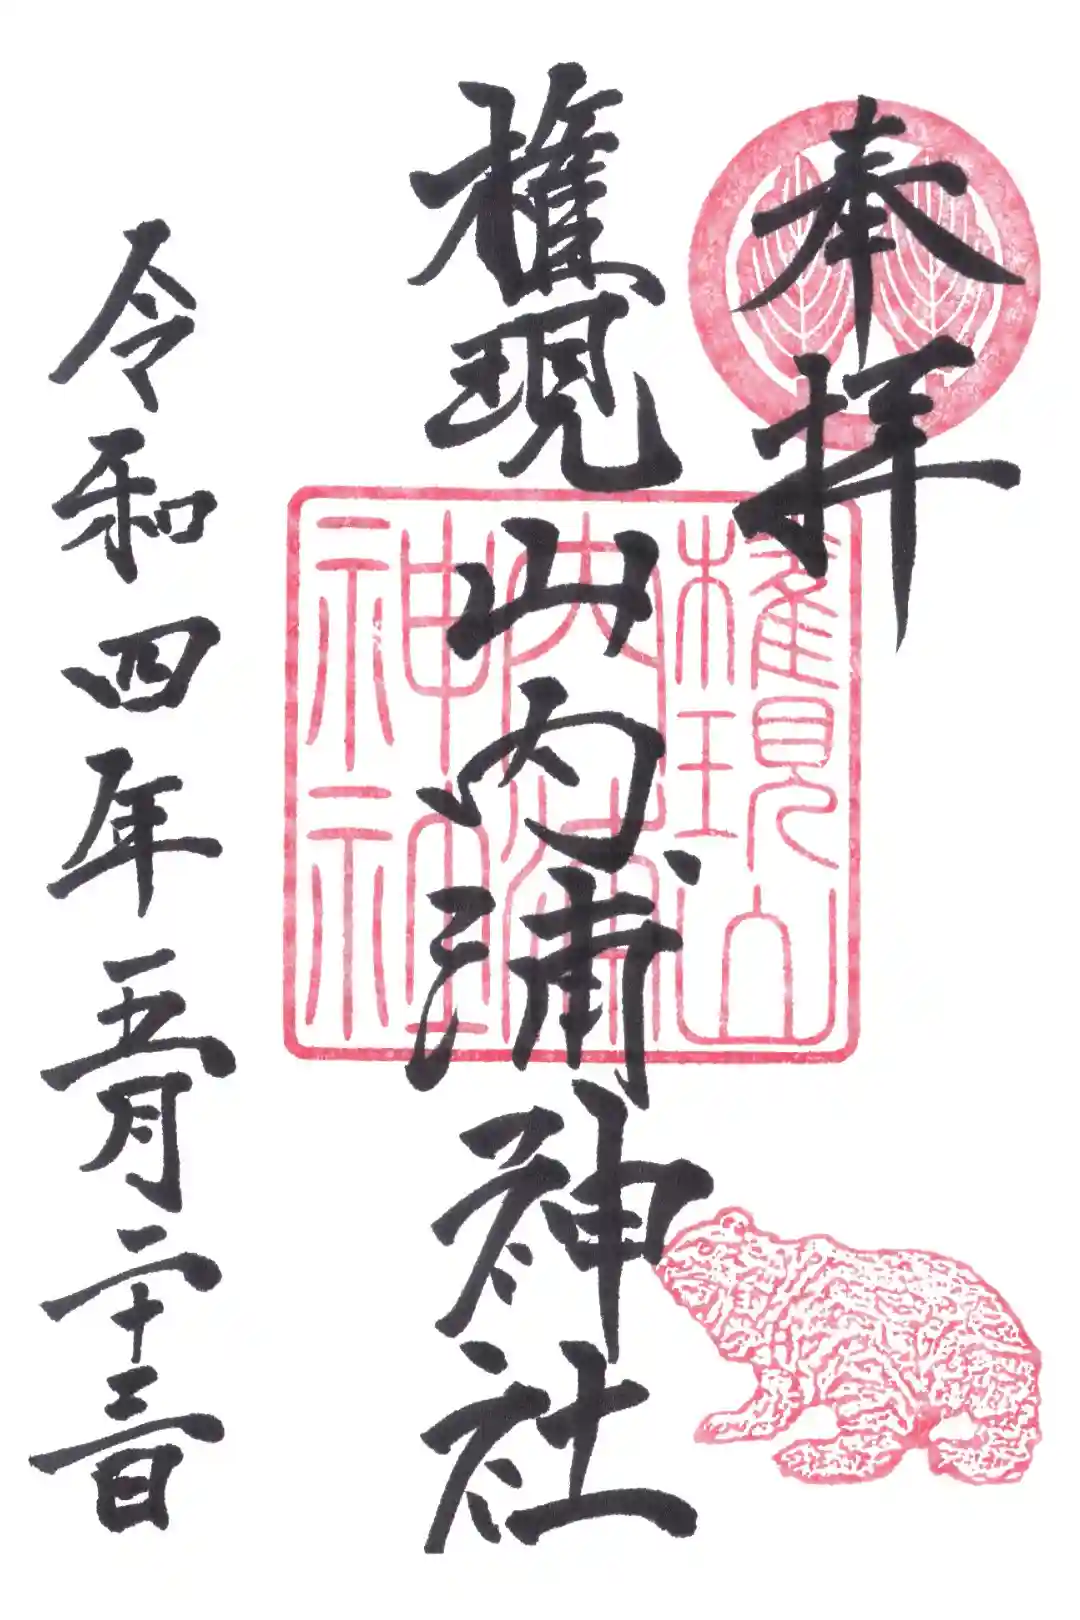 奉拝
権現山内浦神社
令和四年五月二十三日
権現山
内浦
神社